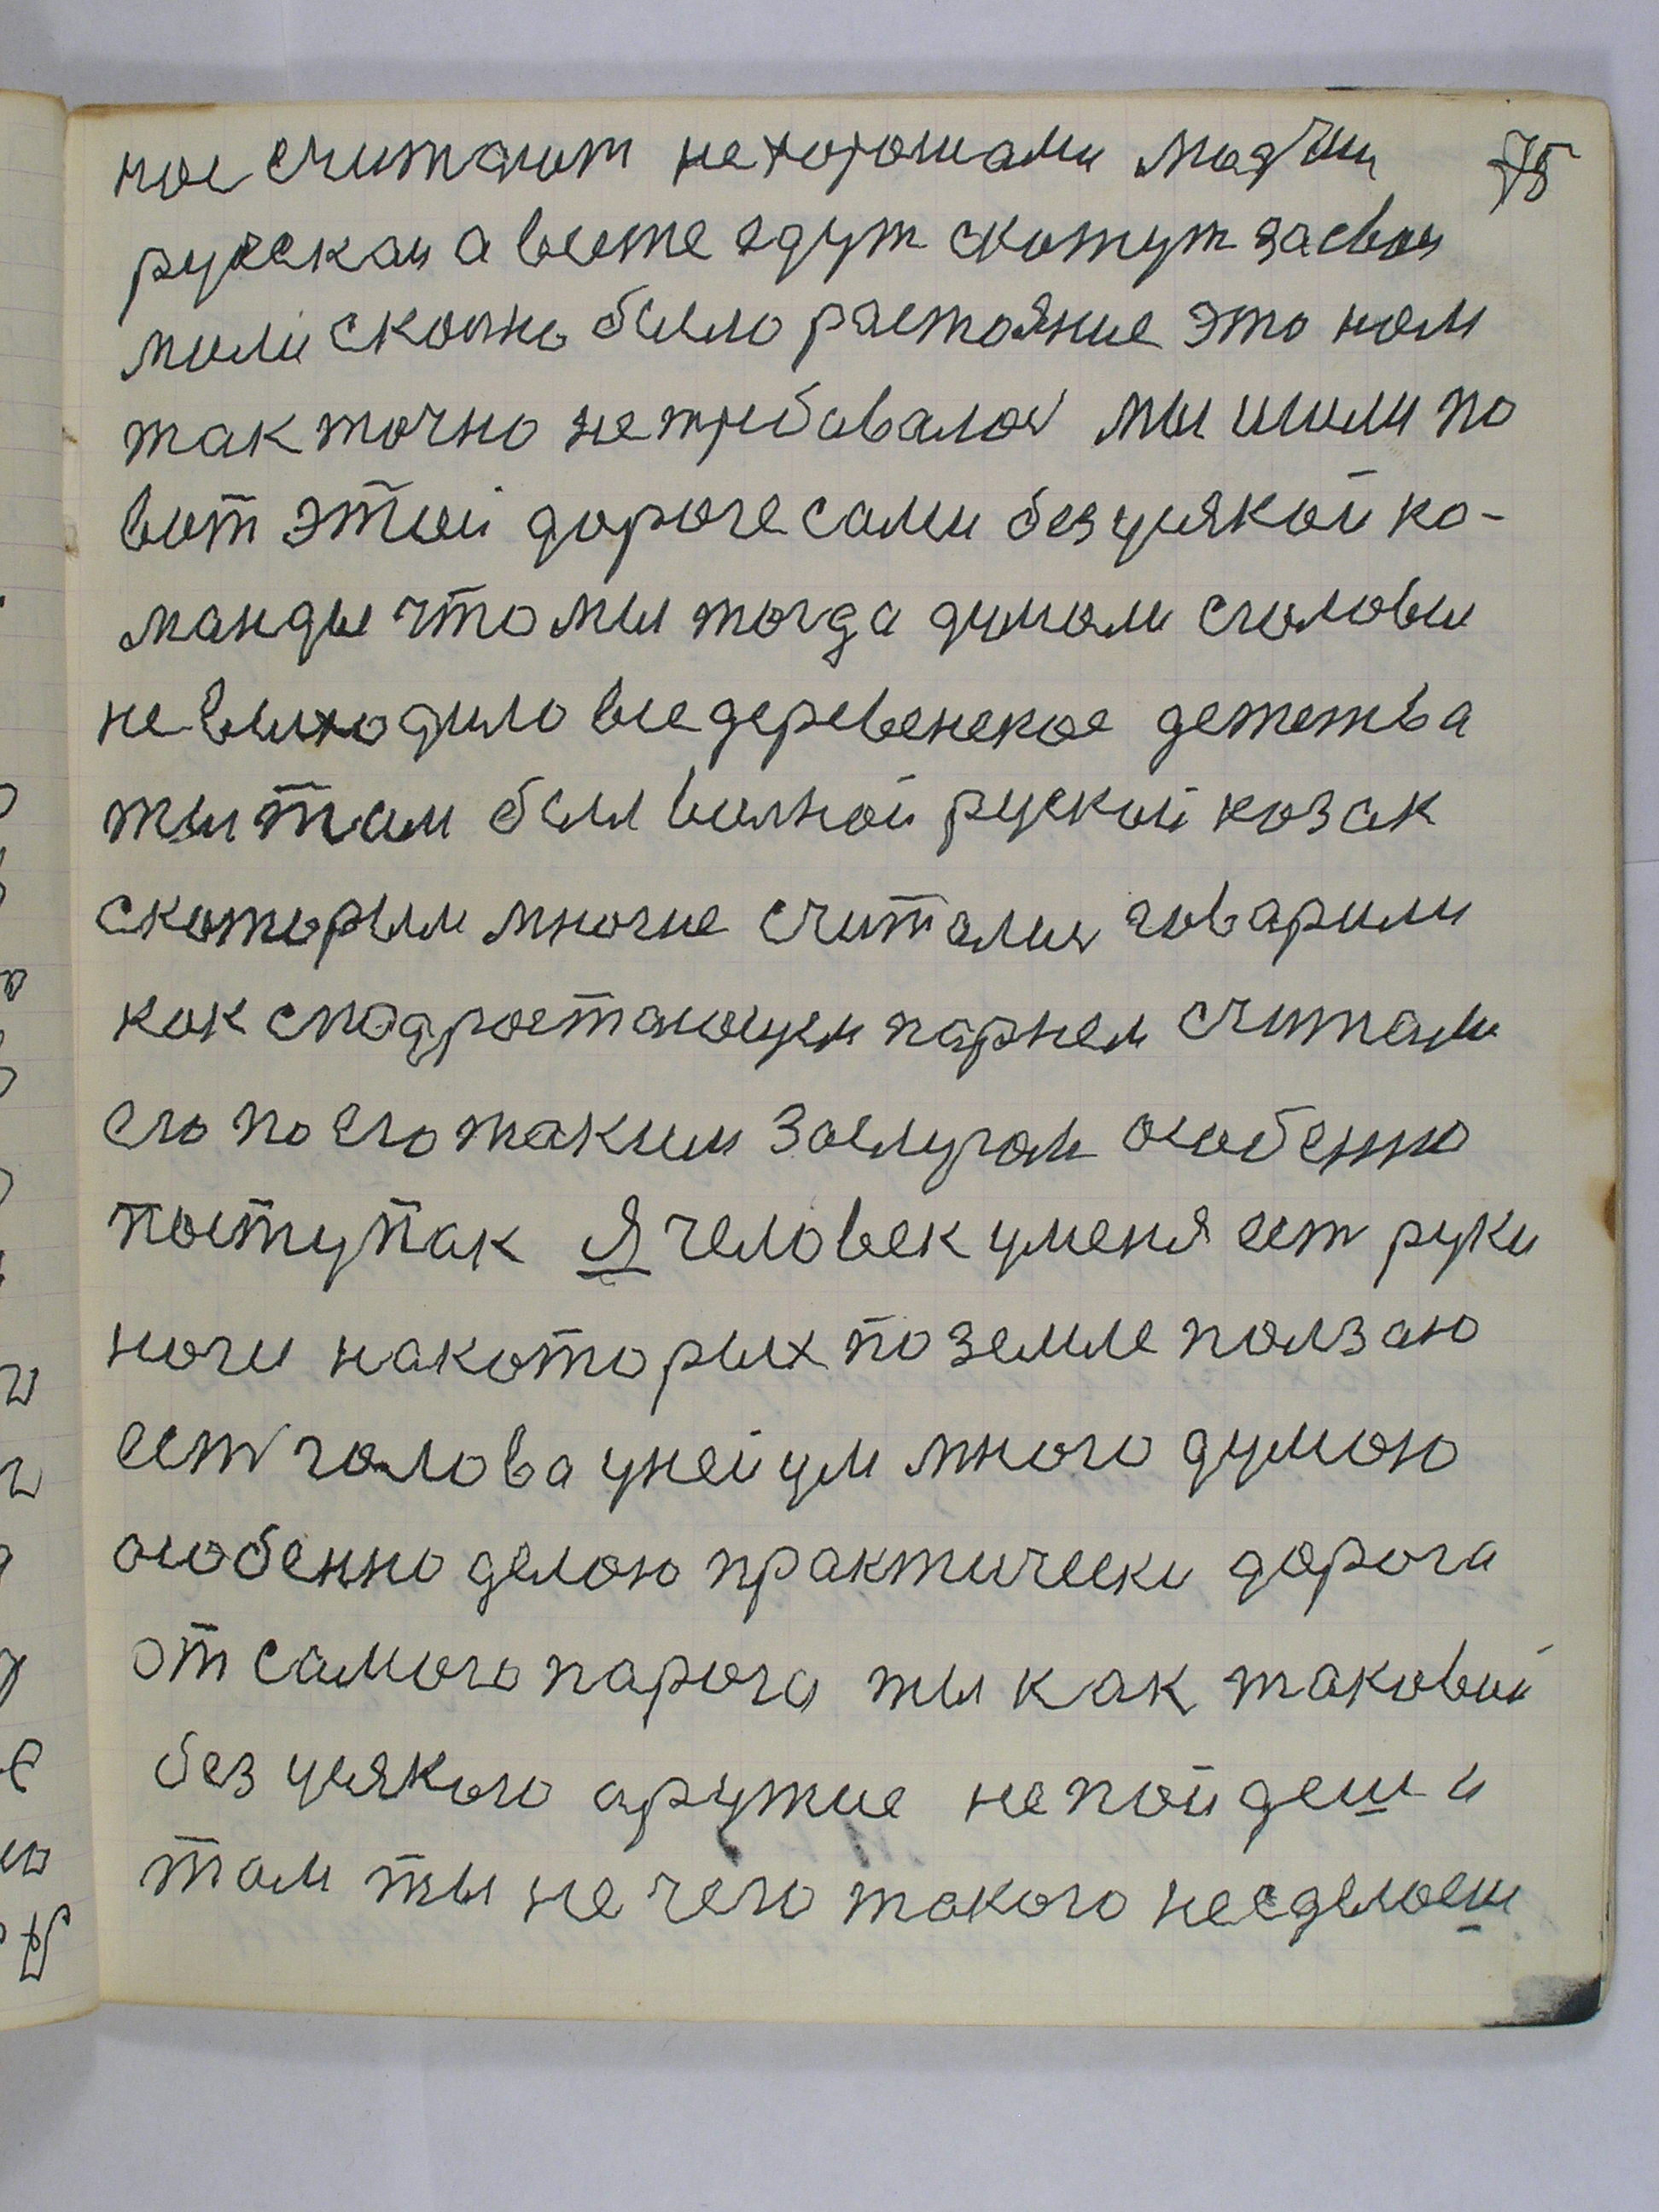 нас считают нехорошами людми 75
руская а высте едут скотут засвои
поли сколко было растояние это нам
так точно нетребавалос мы шыли по
вот этой дороге сами без усякой ко-
манды что мы тогда думали сголовы
не выходило все деревенское детства
ты там был волной руской козак
скоторым многие считалис говарили
как сподростающем парнем считали
его по его таким заслугам особенно
поступак Я человек уменя ест руки
ноги накоторых по земле ползаю
ест голова уней ум много думою
особенно делою практически дорога
от самого парога ты как таковой
без усякого аружие не пойдеш и
там ты не чего такого несделоеш